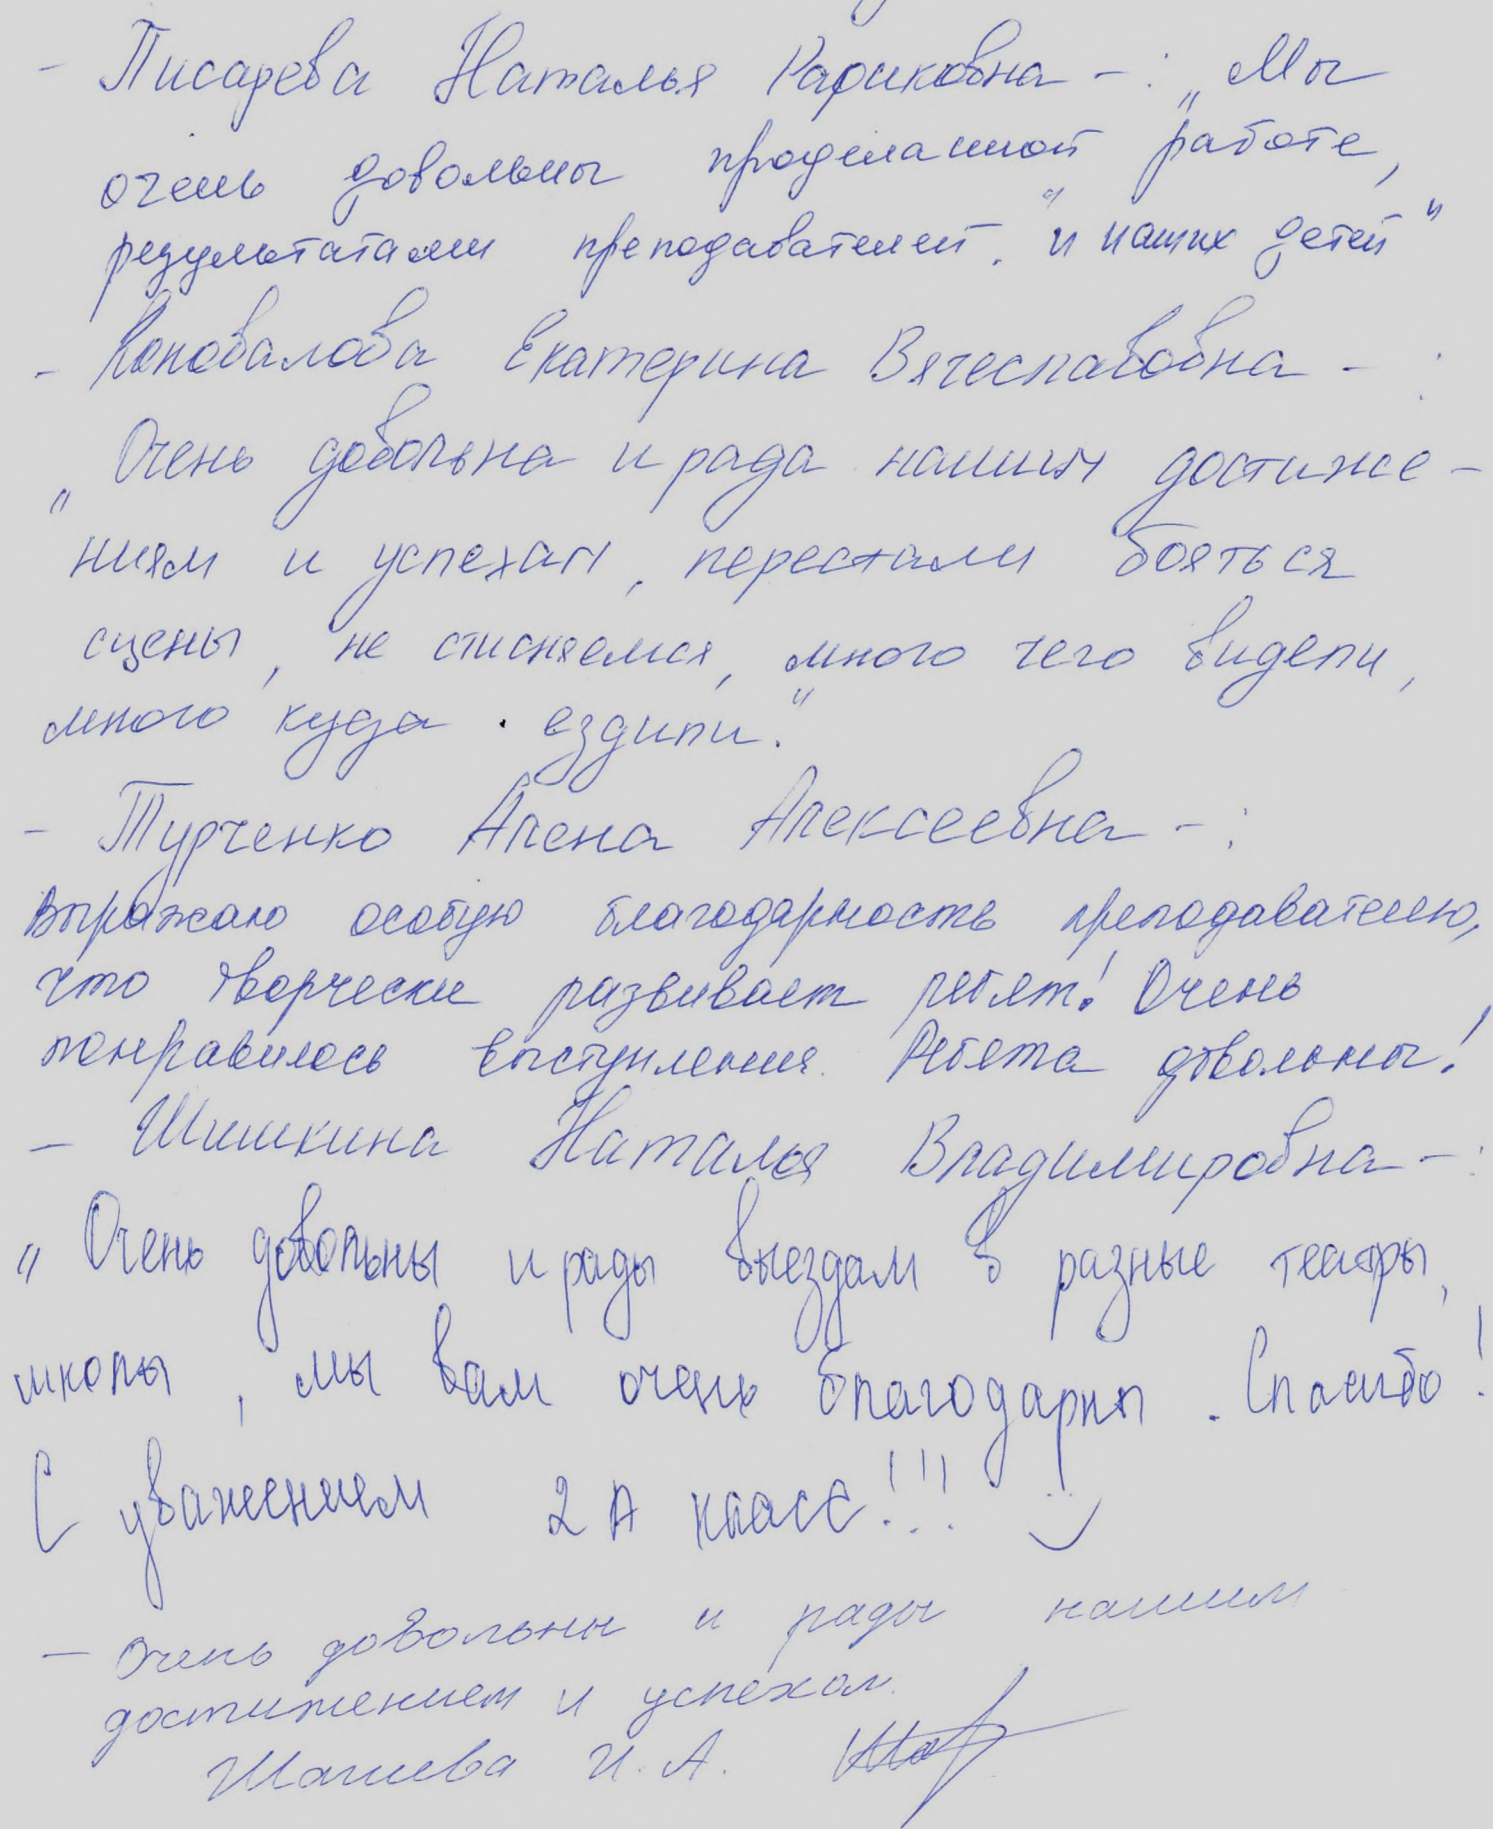 - Писарева Наталья Рафиковна - : „Мы
очень довольны проделанной работе,
результатами преподавателей." и наших детей"
- Коновалова Екатерина Вячеславовна - :
„Очень довольна и рада нашим достиже-
ниям и успехам, перестали бояться
сцены, не стисняемся, много чего видели,
много куда ездили."
- Турченко Алена Алексеевна - :
Выражаю особую благодарность преподавателю,
что творчески развивает ребят! Очень
понравилось выступления. Ребята довольны!
- Шишкина Наталья Владимировна - :
„Очень довольны и рады выездам в разные театры,
школы, мы вам очень благодарны. Спасибо!
С уважением 2 А класс!!!
- Очень довольны и рады нашим
достижением и успехам.
И. А.